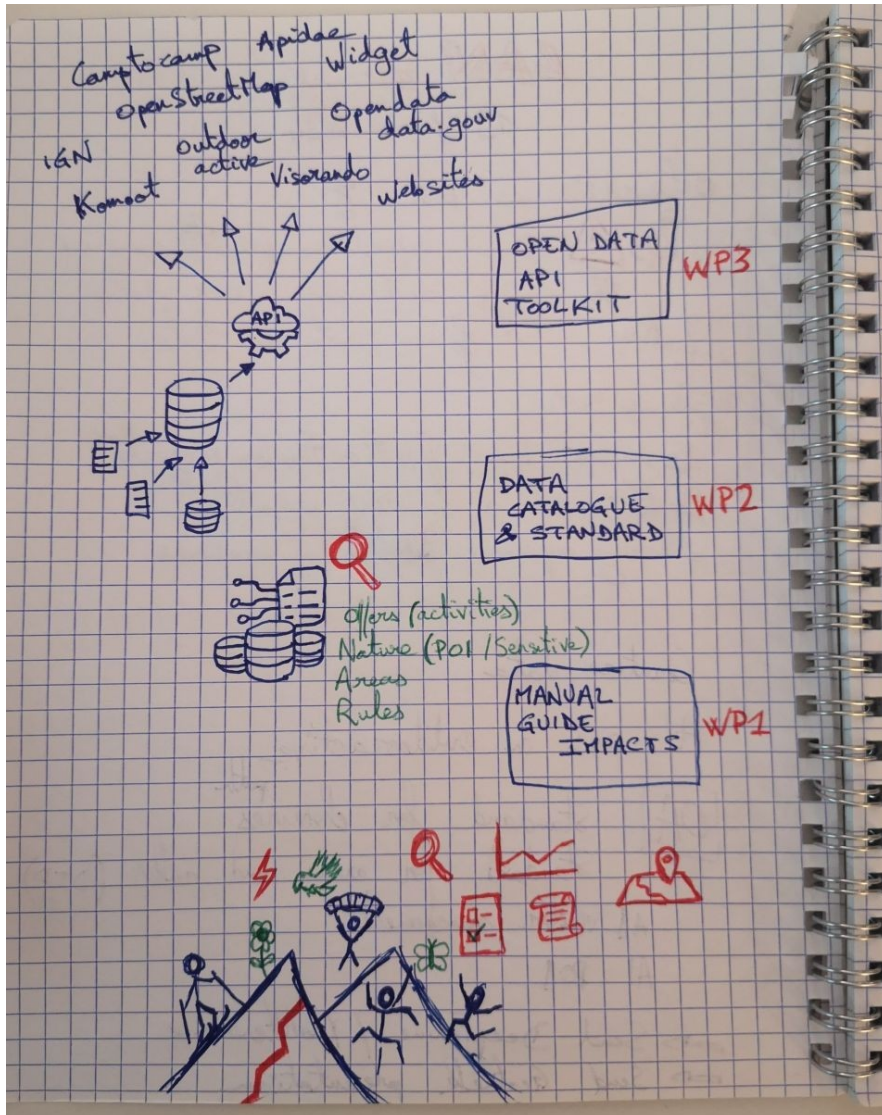 Camptocamp
Apidae
Widget
OpenStreetMap
Opendata
data.gouv
IGN
Outdoor
active
Visorando
Komoot
Websites
API
OPEN DATA
API
TOOLKIT
WP3
DATA
CATALOGUE
& STANDARD
WP2
Offers (activities)
Nature (POI / Sensitive)
Areas
Rules
MANUAL
GUIDE
IMPACTS
WP1